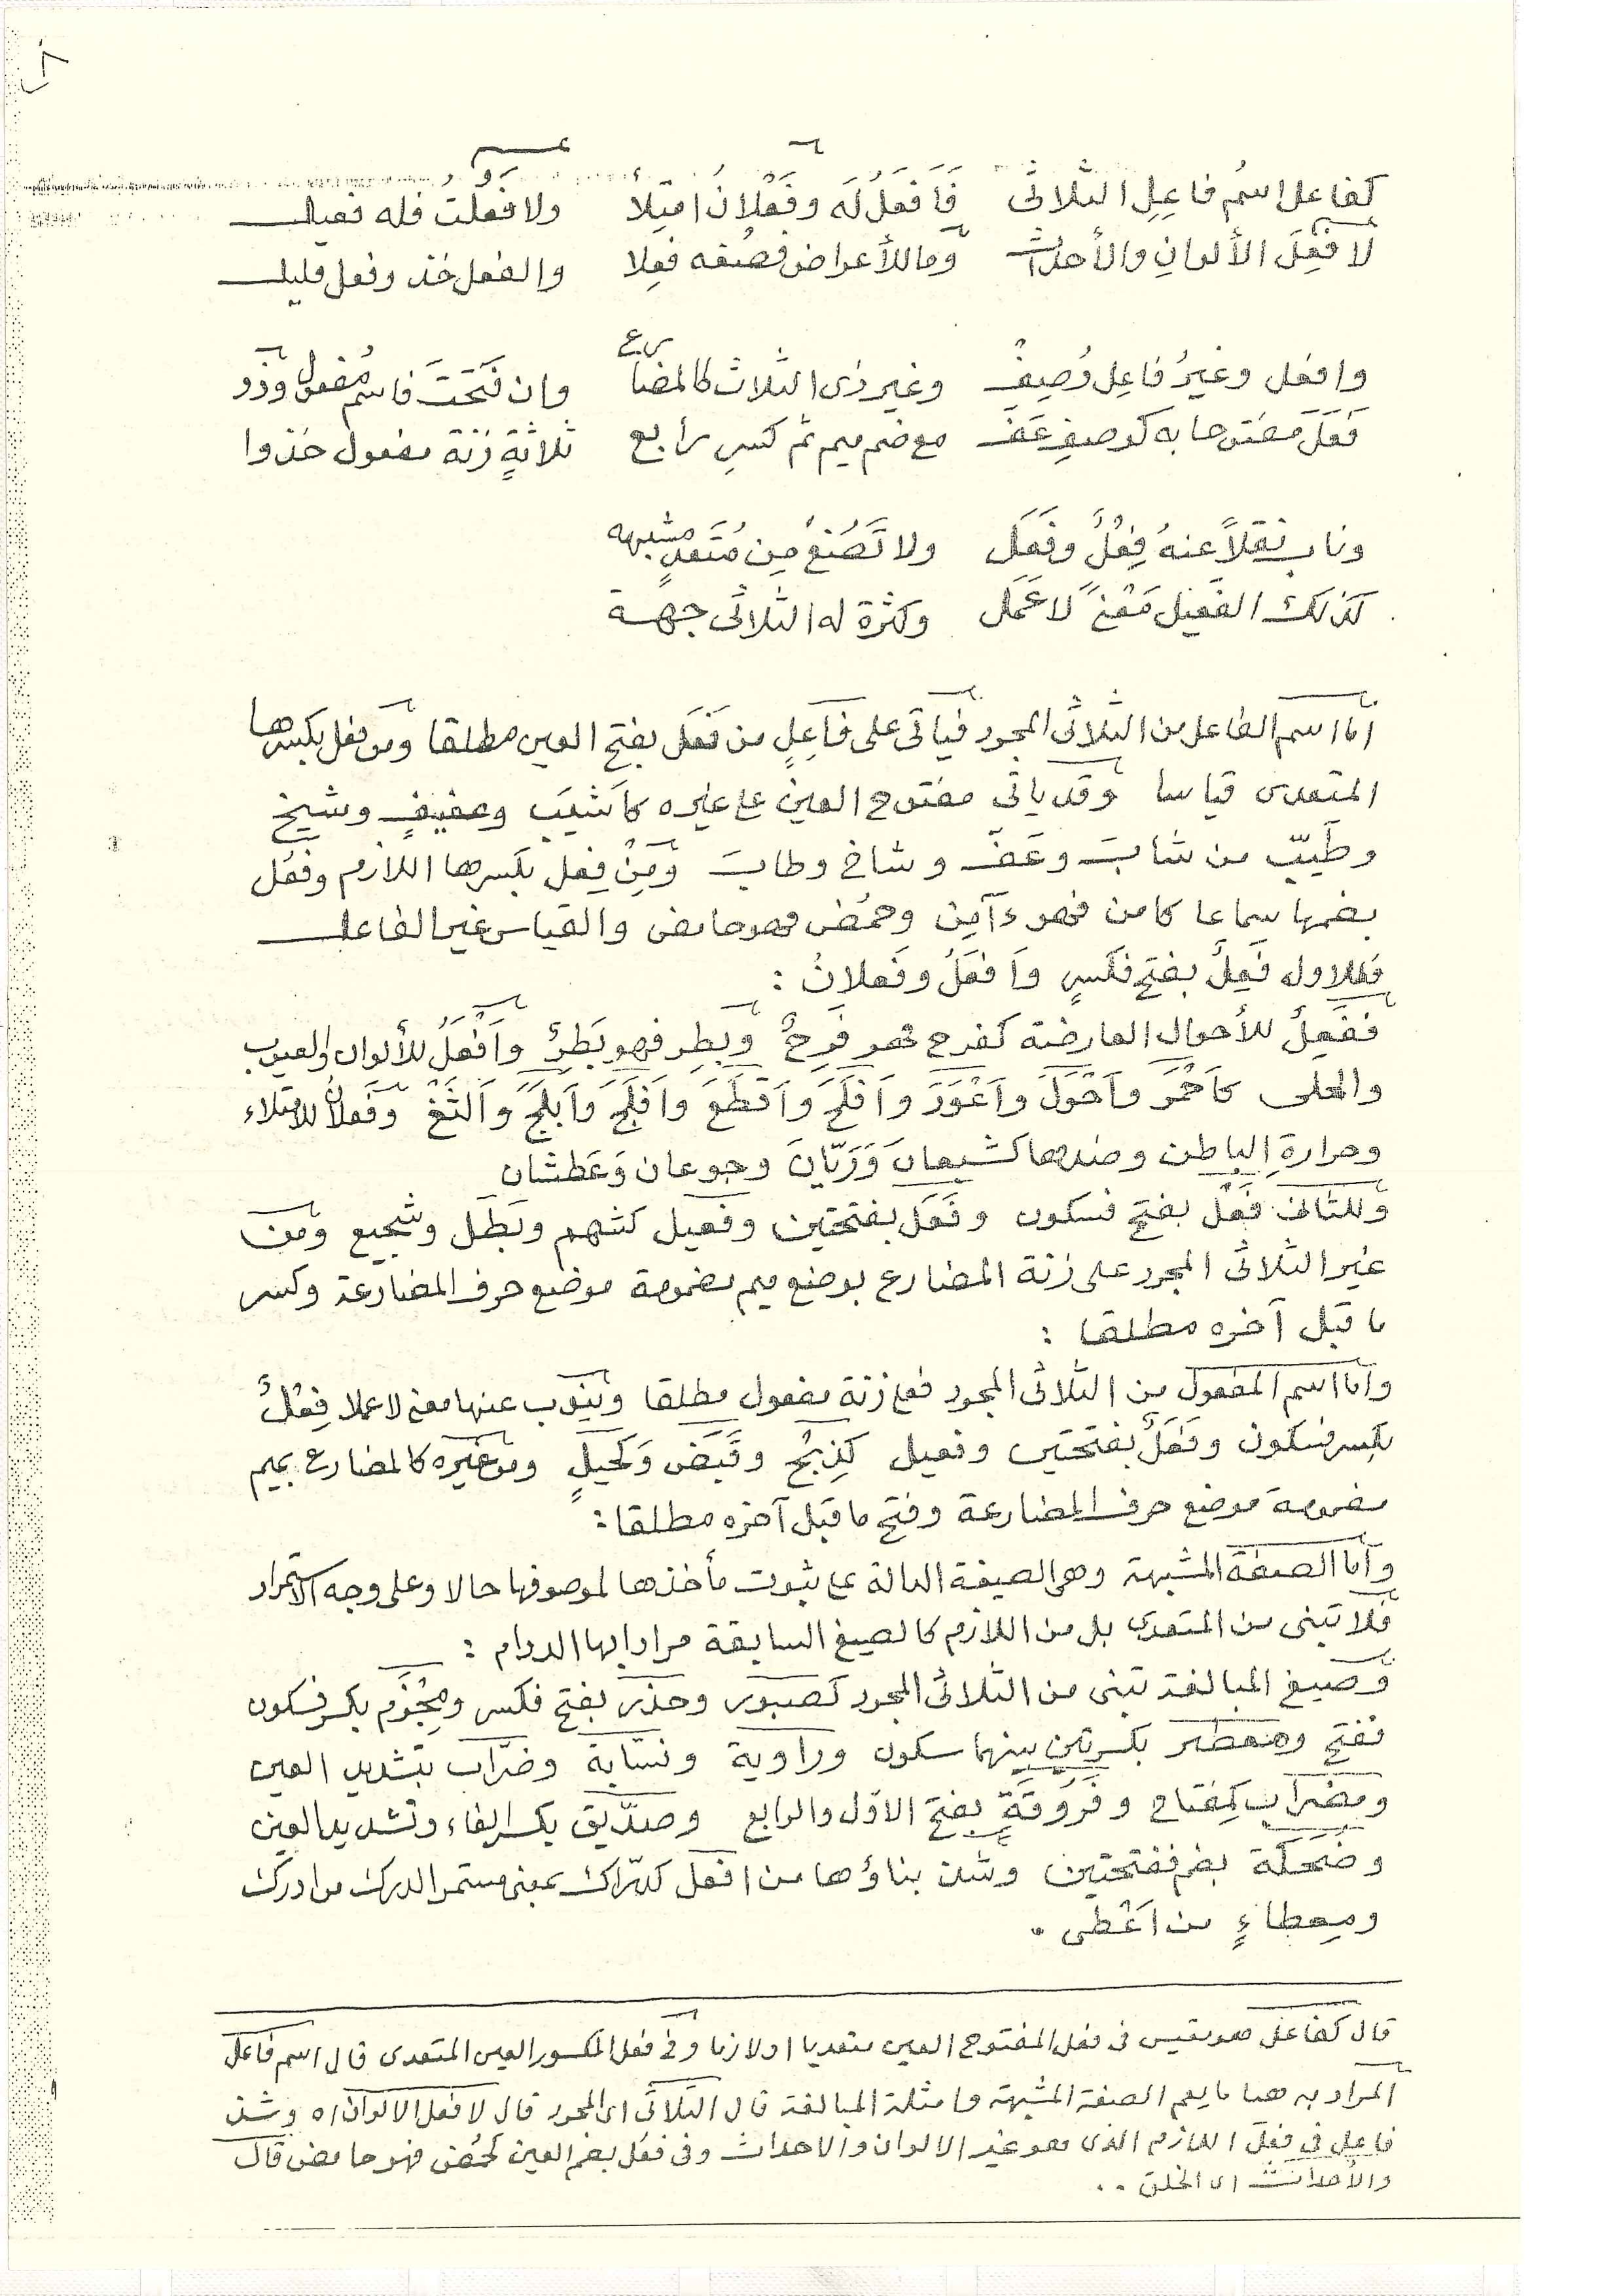 كفاعل اسمُ فاعِلِ الثلاثى فَأَفعَلُ لَه وفَعْلانُ امتِلأ ولا فَعُلتُ فله فعيل
لا فَعِلَ الألوانِ والأحداث وما للأعراض فصُغه فعِلا والفعل خذ وفعل قليل
وافعل وغيرُ فاعِل وُصِفْ وغير ذى الثلاث كالمضارع وان فَتَحتَ فاسم مُفعول وذو
فَعَلَ مفتوحا به كوصفِ عَفَّ مع ضم ميم ثم كسرِ رابع ثلاثةٍ زنة مفعول خذوا
وناب نقلاً عنهُ فِعْلٌ وفَعَل ولا تَصُغْ مِن مُتَعدٍّ مشبهه
كذلك الفعيل مَعْنىً لا عَمَل وكثرة له الثلاثى جهة
اما اسم الفاعل من الثلاثى المجرد فيأتى على فاعِلٍ من فَعَل بفتح العين مطلقا ومن فعل بكسرها
المتعدى قياسا وقد ياتى مفتوح العين على غيره كأشيَب وعفيفٍ وشيخ
وطَيّب من شابَ وعَفّ وشاخ وطابَ ومِنْ فِعل بكسرها اللازم وفعُل
بضمها سماعا كامن فهو ءآمِن وحمُض فهو حامض والقياس غير الفاعل
فللاول فَعِلٌ بفتح فكسرٍ وأَفعَلُ وفَعلانُ :
ففَعِلٌ للأحوال العارضة كفرح فهو فَرِحٌ وبطِر فهو بَطِرٌ وأَفْعَلُ للألوان والعيوب
والحلى كأَحْمَرَ وأَحْوَلَ وأَعْوَرَ وأَفلَحَ وأَقطَعَ وأَفلَجَ وأَبلَجَ وأَلثَغَ وفَعلانُ للامتلاء
وحرارةِ الباطن وضدهما كشبعانَ ورَيّانَ وجوعان وعَطشان
وللثانى فَعْل بفتح فسكون وفَعَل بفتحتين وفعيل كشهم وبَطَل وشجيع ومن
غير الثلاثى المجرد على زنة المضارع بوضع ميم مضمومة موضع حرف المضارعة وكسر
ما قبل آخره مطلقا :
واما اسم المفعول من الثلاثى المجرد فعلى زنة مفعول مطلقا وينوب عنها معنى لا عملا فِعْلٌ
بكسر فسكون وفَعَلٌ بفتحتين وفعيل كذِبْحٌ وقَبَض وكَحيلٍ ومن غيره كالمضارع بميم
مضمومة موضع حرف المضارعة وفتح ما قبل آخره مطلقا :
وأما الصفة المشبهة وهى الصيغة الدالة على ثبوت مأخذها لموصوفها حالا وعلى وجه الاستمرار
فلا تبنى من المتعدى بل من اللازم كالصيغ السابقة مرادا بها الدوام :
وصيغ المبالغة تبنى من الثلاثى المجرد كصبور وحذر بفتح فكسر ومِجْزَم بكسر فسكون
ففتح ومنطير بكسرتين بينهما سكون وراوية ونسّابة وضرّاب بتشديد العين
ومضراب كمفتاح وفَرُوقَةٍ بفتح الاوّل والرابع وصدّيق بكسر الفاء وتشديد العين
وضُحَكَة بضم ففتحتين وشذ بناؤها من افعل كدرّاك بمعنى مستمر الدرك من ادرك
ومِعطاءٍ من اَعْطى .
قال كفاعل هو مقيس فى فعل المفتوح العين متعديا او لازما وفى فعل المكسور العين المتعدى قال اسم فاعل
المراد به هنا ما يعم الصفة المشبهة وامثلة المبالغة قال الثلاثى اى المجرد قال لا فعل الالوان اه وشذ
فاعل فى فعل اللازم الذى هو غير الالوان والاحداث وفى فعُل بضم العين كحمُض فهو حامض قال
والأحداث اى الخلق ..